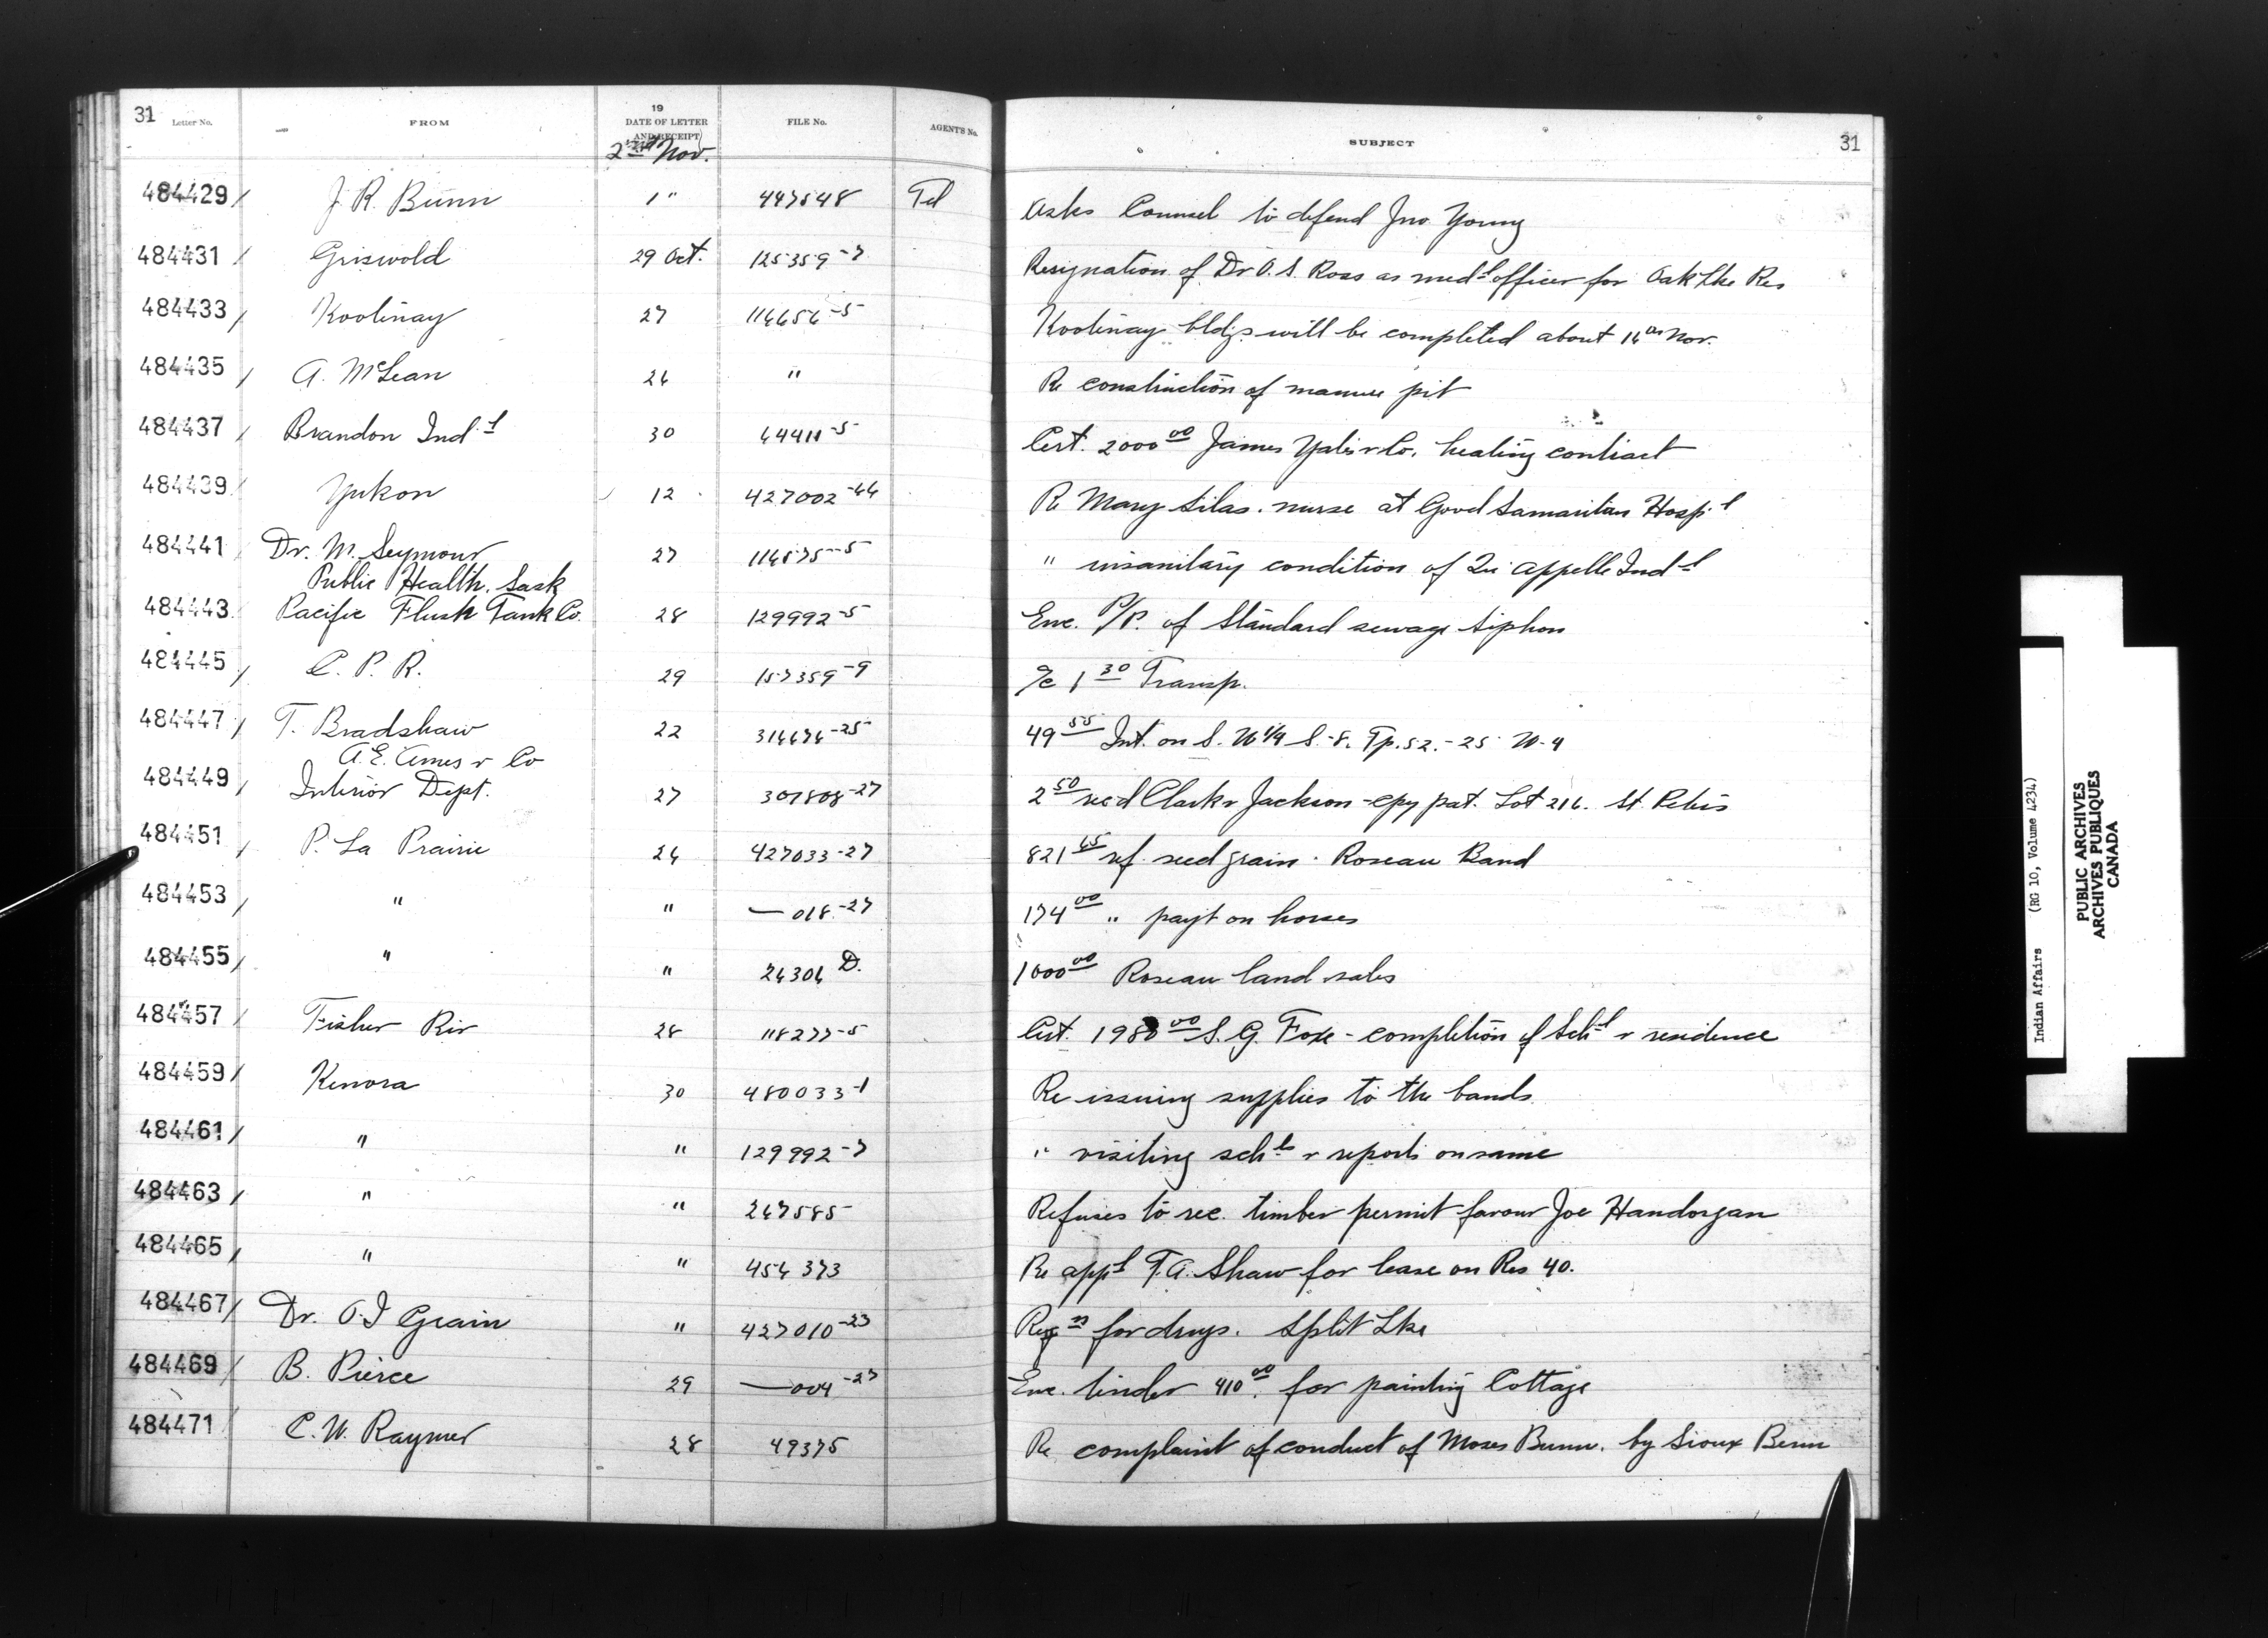 31 Letter No. FROM 19 DATE OF LETTER AND RECEIPT FILE No. AGENT'S No. SUBJECT 31
2nd Nov.
484429 J. R. Bunn 1 " 447548 Tel Asks Counsel to defend Jno. Young
484431 Griswold 29 Oct. 125359-7 Resignation of Dr O. S. Ross as medl officer for Oak Lke Res
484433 Kootenay 27 116656-5 Kootenay bldgs will be completed about 16th Nov.
484435 A. McLean 26 " Re construction of manure pit
484437 Brandon Indl 30 64411-5 Cert. 2000 00 James Yates & Co. heating contract
484439 Yukon 12 427002-46 Re Mary Silas. nurse at Good Samaritan Hospl
484441 Dr. M. Seymour 27 116575-5 " insanitary condition of Qu'appelle Indl
Public Health. Sask
484443 Pacific Flush Tank Co. 28 129992-5 Enc. P/P. of Standard sewage siphon
484445 C. P. R. 29 157359-9 a/c 1 30 Transp.
484447 T. Bradshaw 22 314676-25 49 55 Int. on S. W 1/4 S.-8. Tp. 52.-25 W-4
A. E. Ames & Co
484449 Interior Dept. 27 307808-27 2 50 recd Clark & Jackson - cpy pat. Lot 216. St. Peters
484451 P. La Prairie 26 427033-27 821 65 ref. seed grain. Roseau Band
484453 " " — 018-27 174 00 " payt on horses
484455 " " 26306 D. 1000 00 Roseau land sales
484457 Fisher Riv 28 118277-5 Cert. 1980 00 S. G. Foxe - completion of Schl & residence
484459 Kenora 30 480033-1 Re issuing supplies to the bands
484461 " " 129992-7 " visiting schls & reports on same
484463 " " 267585 Refuses to rec. timber permit favour Joe Handorgan
484465 " " 456373 Re appl T. A. Shaw for lease on Res 40.
484467 Dr. O. I Grain " 427010-23 Reqn for drugs. Split Lke
484469 B. Pierce 29 — 004-27 Enc. tender 410 00. for painting Cottage
484471 C. W. Raymer 28 49375 Re complaint of conduct of Moses Bunn. by Sioux Benn
Indian Affairs (RG 10, Volume 4234)
PUBLIC ARCHIVES
ARCHIVES PUBLIQUES
CANADA